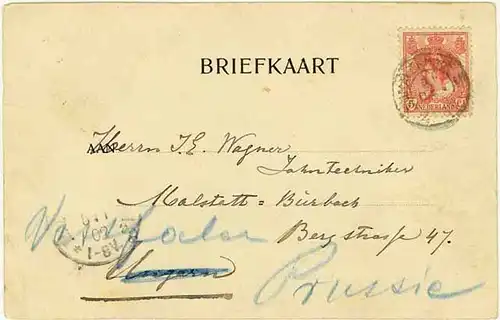 BRIEFKAART
5 NEDERLAND
AAN Herrn J. E. Wagner
Zahntechniker
Malstatt-Burbach
Bergstrasse 47.
02
1-8V
Ungarn
Prussie